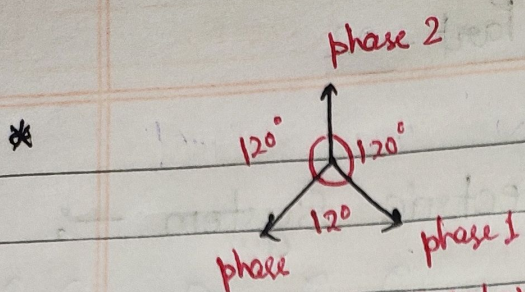 phase 2
*
120° 120°
120
phase phase 1